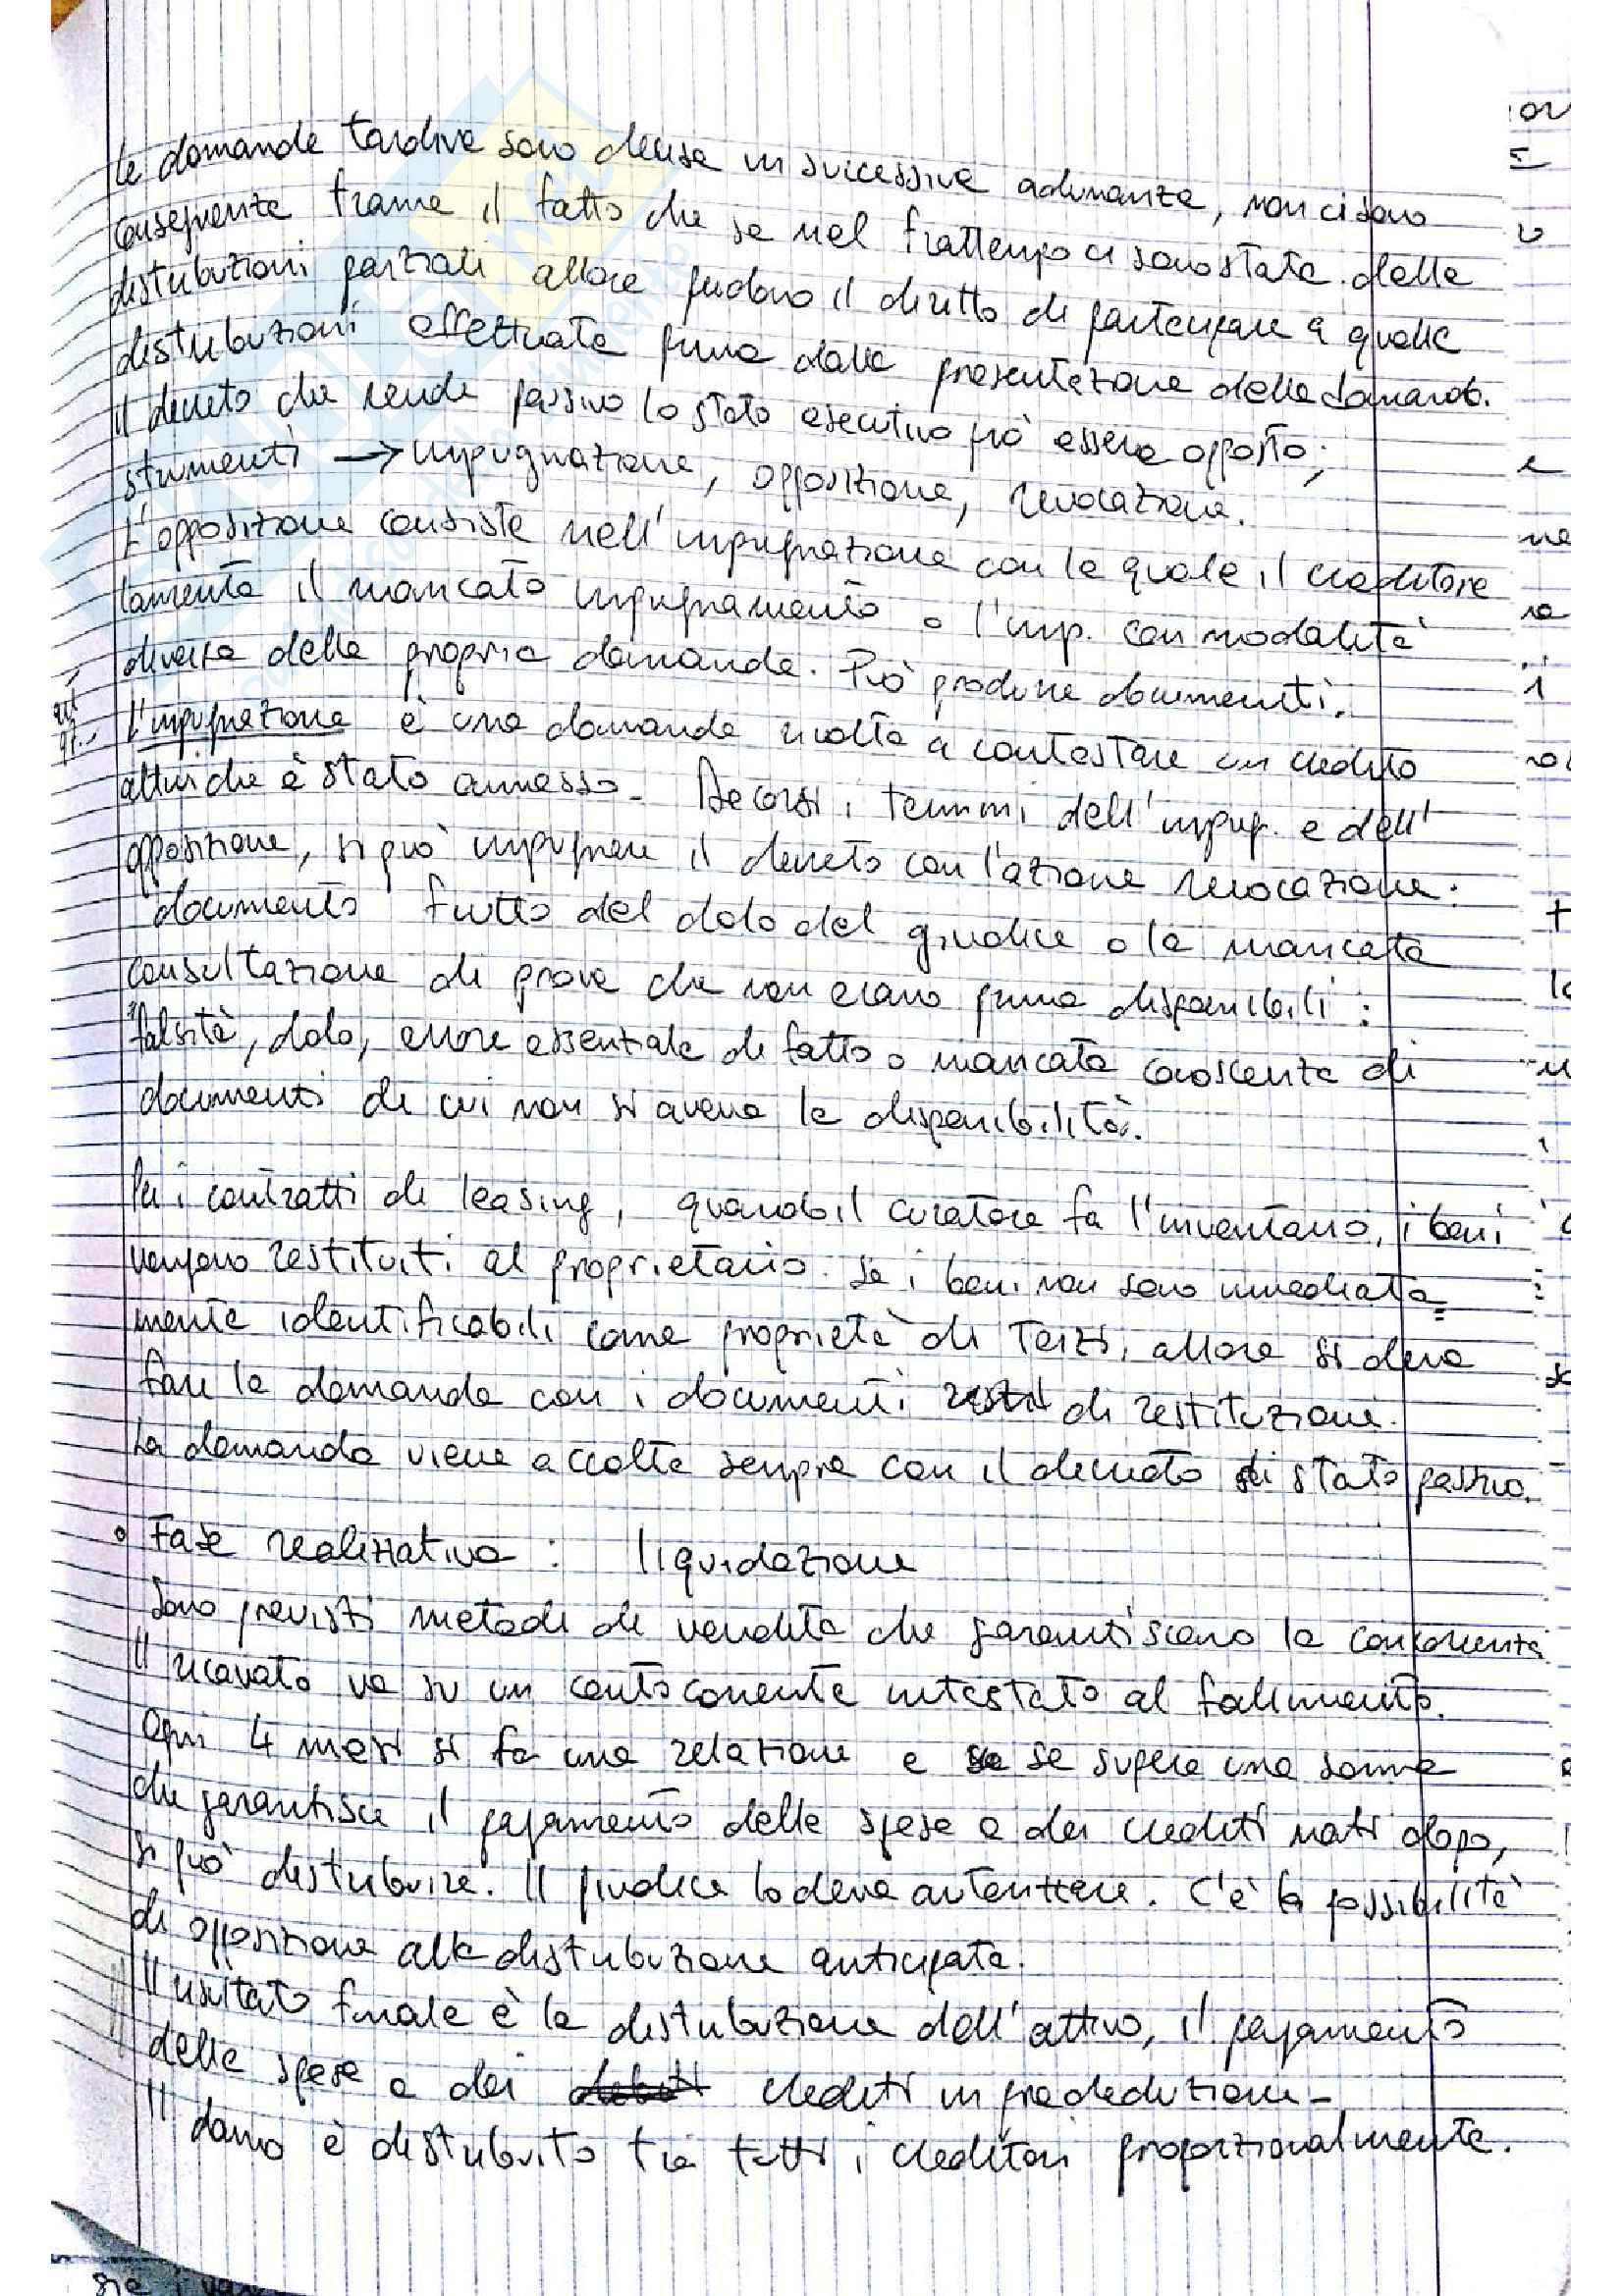 Le domande tardive sono decise in successive adunanze, non ci sono
conseguenze tranne il fatto che se nel frattempo ci sono state delle
distribuzioni parziali allora perdono il diritto di partecipare a quelle
distribuzioni effettuate prima della presentazione della domanda.
Il decreto che rende passivo lo stato esecutivo può essere opposto;
strumenti → impugnazione, opposizione, revocazione.
L'opposizione consiste nell'impugnazione con la quale il creditore
lamenta il mancato impugnamento o l'imp. con modalità
diversa della propria domanda. Può produrre documenti.
L'impugnazione è una domanda rivolta a contestare un credito
altrui che è stato ammesso. Decorsi i termini dell'impug. e dell'
opposizione, si può impugnare il decreto con l'azione revocazione:
documento frutto del dolo del giudice o la mancata
consultazione di prove che non erano prima disponibili:
falsità, dolo, errore essenziale di fatto o mancata conoscenza di
documenti di cui non si aveva la disponibilità.
Per i contratti di leasing, quando il curatore fa l'inventario, i beni
vengono restituiti al proprietario. Se i beni non sono immediata=
mente identificabili come proprietà di terzi, allora si deve
fare la domanda con i documenti di restituzione.
La domanda viene accolta sempre con il decreto di stato passivo.
° Fase realizzativa: liquidazione
Sono previsti metodi di vendita che garantiscano la concorrenza
Il ricavato va su un contocorrente intestato al fallimento.
Ogni 4 mesi si fa una relazione e se se supera una somma
che garantisce il pagamento delle spese e dei crediti nati dopo,
si può distribuire. Il giudice lo deve autorizzare. C'è la possibilità
di opposizione alla distribuzione anticipata.
Il risultato finale è la distribuzione dell'attivo, il pagamento
delle spese e dei debiti crediti in prededuzione.
Il danno è distribuito tra tutti i creditori proporzionalmente.